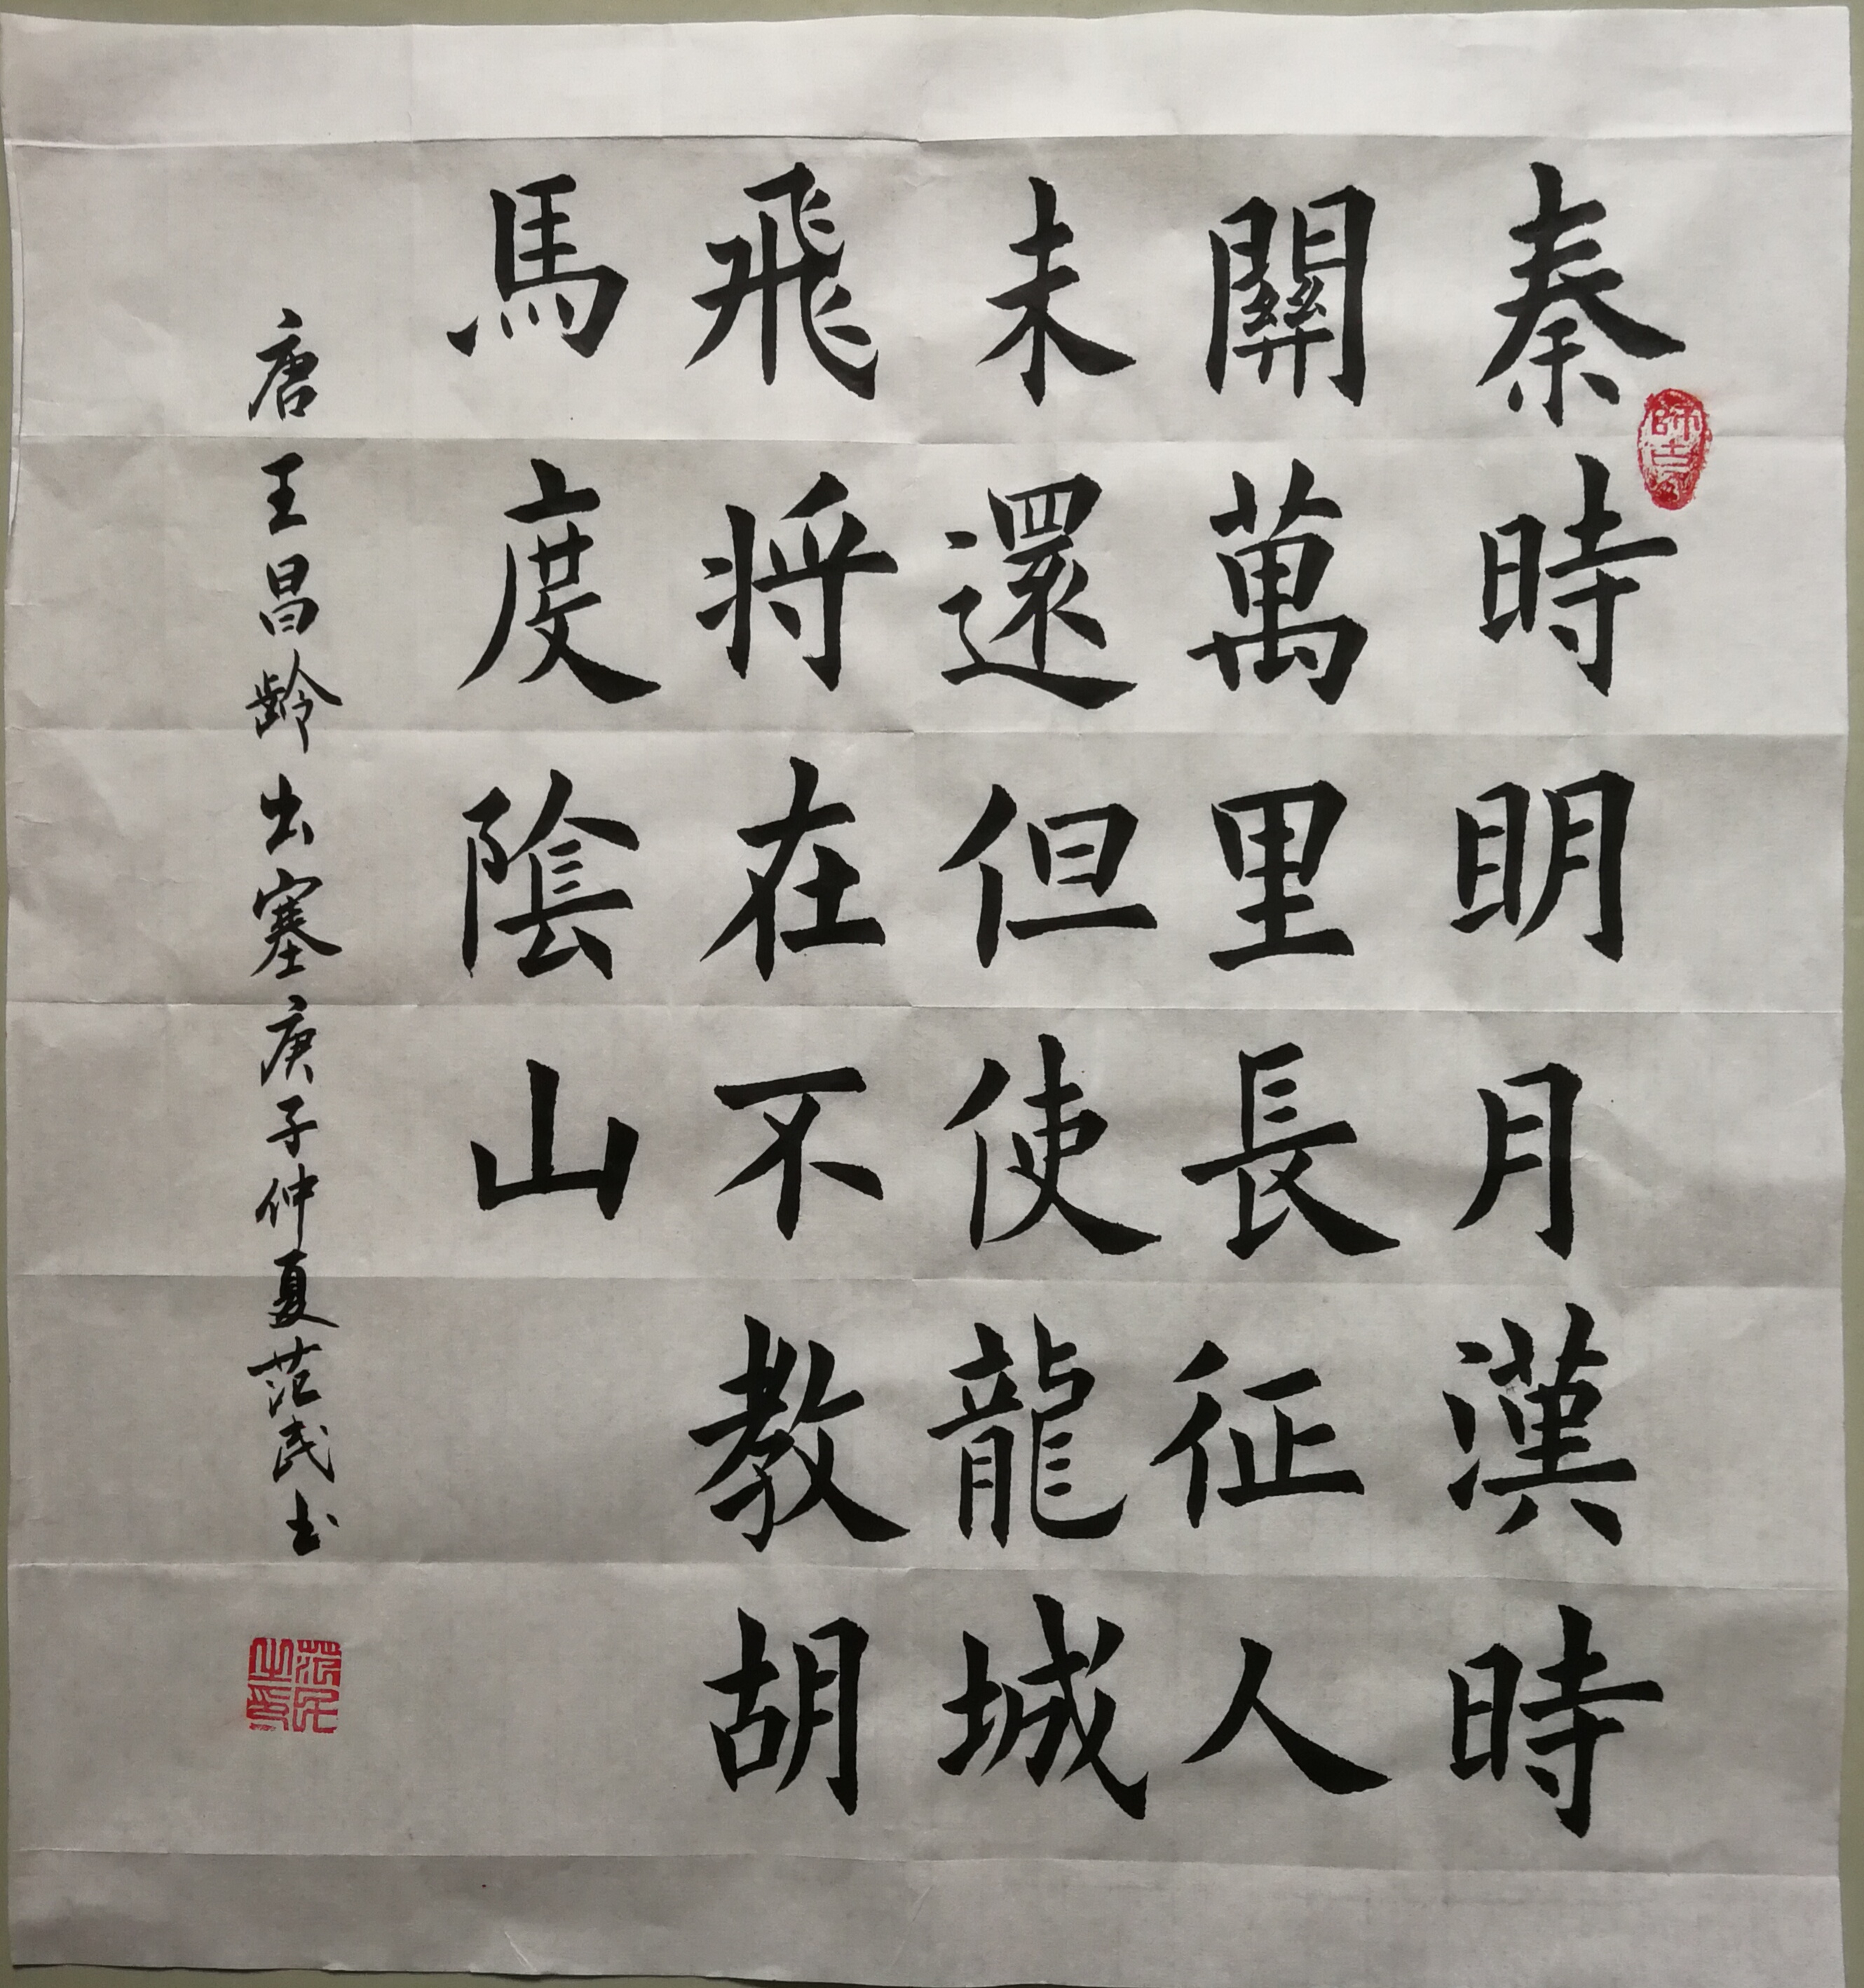 秦時明月漢時
關萬里長征人
未還但使龍城
飛将在不教胡
馬度陰山
唐王昌龄出塞庚子仲夏范民书
師古
范民之印